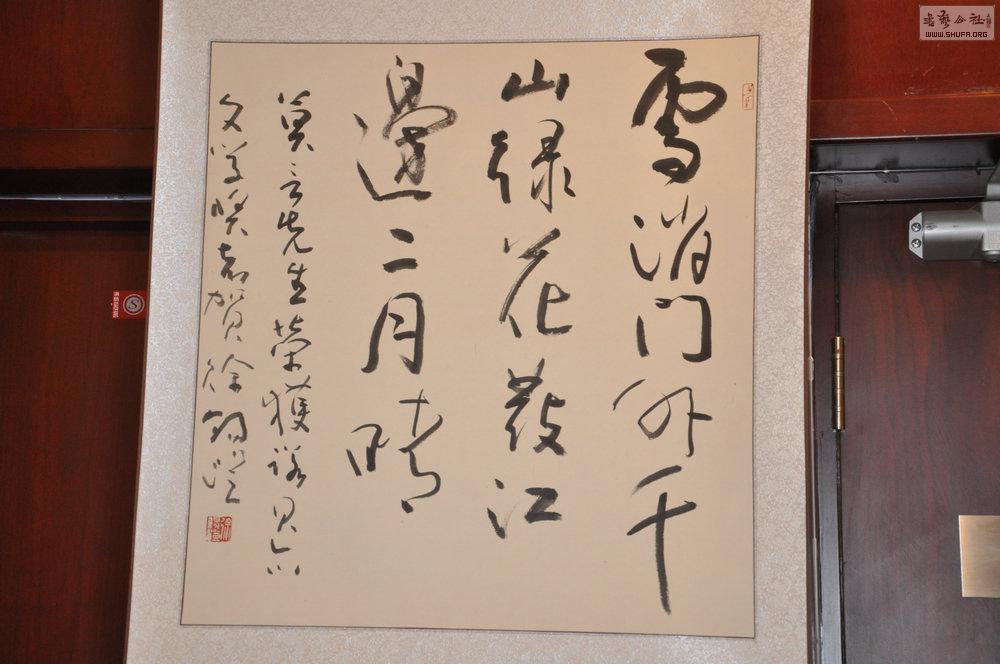 雪消门外千
山绿花发江
邊二月晴
莫言先生荣獲诺贝尔
文学奖志贺徐
书艺公社
WWW.SHUFA.ORG